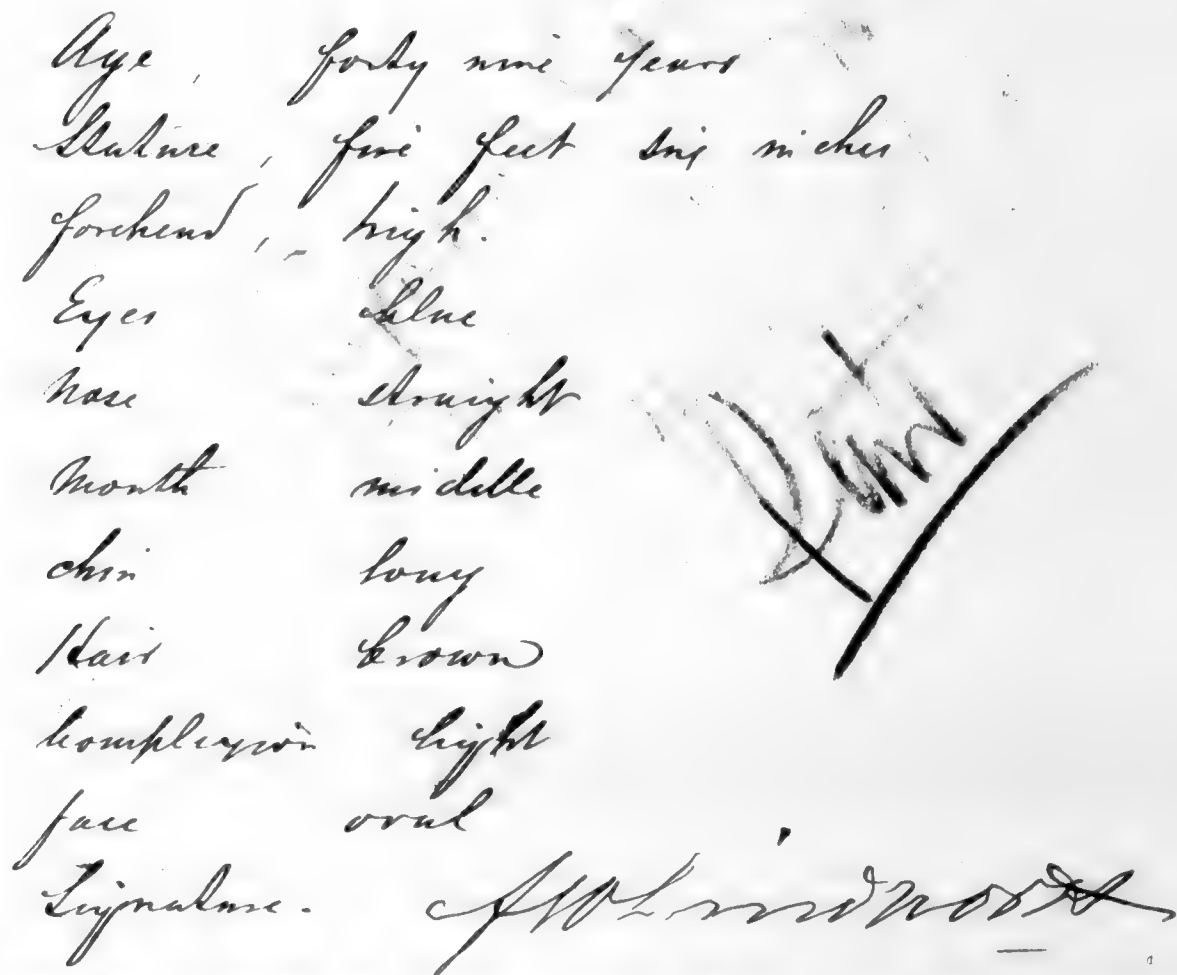 Age, forty nine years
Stature, five feet six inches
forehead, high.
Eyes blue
Nose straight
Mouth middle
chin long
Hair brown
Complexion light
face oval
Signature.